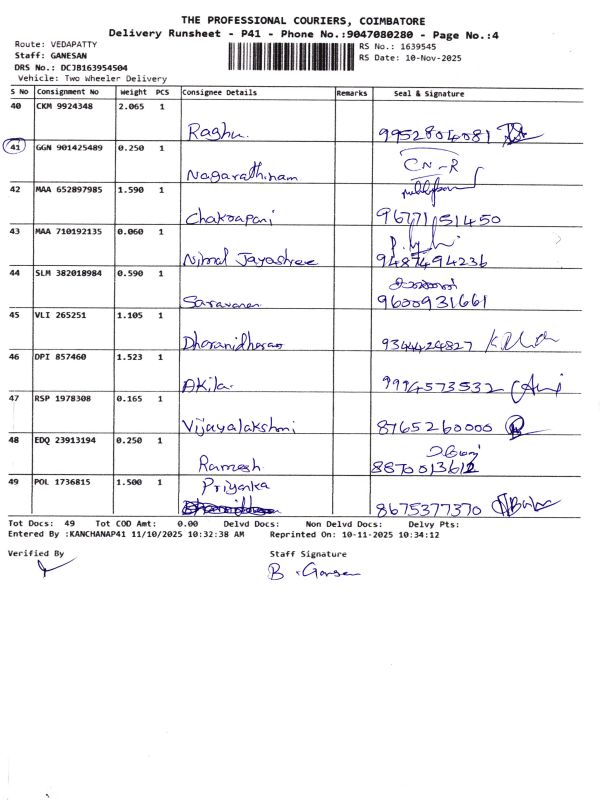 THE PROFESSIONAL COURIERS, COIMBATORE
Delivery Runsheet - P41 - Phone No.:9047080280 - Page No.:4
Route: VEDAPATTY
RS No.: 1639545
Staff: GANESAN
RS Date: 10-Nov-2025
DRS No.: DCJB163954504
Vehicle: Two Wheeler Delivery
S No Consignment No Weight PCS Consignee Details Remarks Seal & Signature
40 CKM 9924348 2.065 1
Raghu. 9952804081
41 GGN 901425489 0.250 1
CN-R
Nagarathinam
42 MAA 652897985 1.590 1
Chakrapani 9677151450
43 MAA 710192135 0.060 1
Nirmal Jayashree 9487494236
44 SLM 382018984 0.590 1
Saravanan 9600931661
45 VLI 265251 1.105 1
Dharanidharan 9344424827
46 DPI 857460 1.523 1
Akila. 9994573532
47 RSP 1978308 0.165 1
Vijayalakshmi 8765260000
48 EDQ 23913194 0.250 1
Ramesh 8870013612
49 POL 1736815 1.500 1
Priyanka
8675377370
Tot Docs: 49 Tot COD Amt: 0.00 Delvd Docs: Non Delvd Docs: Delvy Pts:
Entered By :KANCHANAP41 11/10/2025 10:32:38 AM Reprinted On: 10-11-2025 10:34:12
Verified By Staff Signature